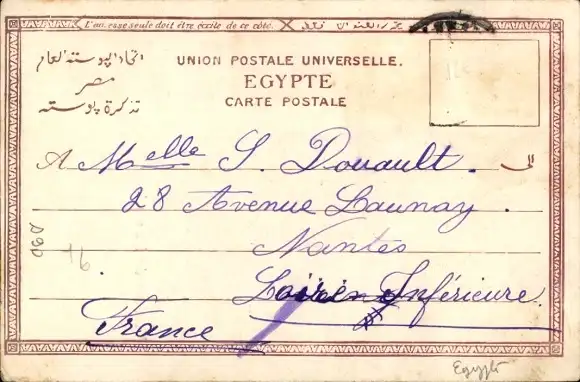 L'adresse seule doit être écrite de ce côté.
اتحاد البوسته العام
مصر
تذكرة بوسته
UNION POSTALE UNIVERSELLE.
EGYPTE
CARTE POSTALE
A Melle S. Douault. الى
28 Avenue Launay.
Nantes
Loire Inférieure.
France
Egypt